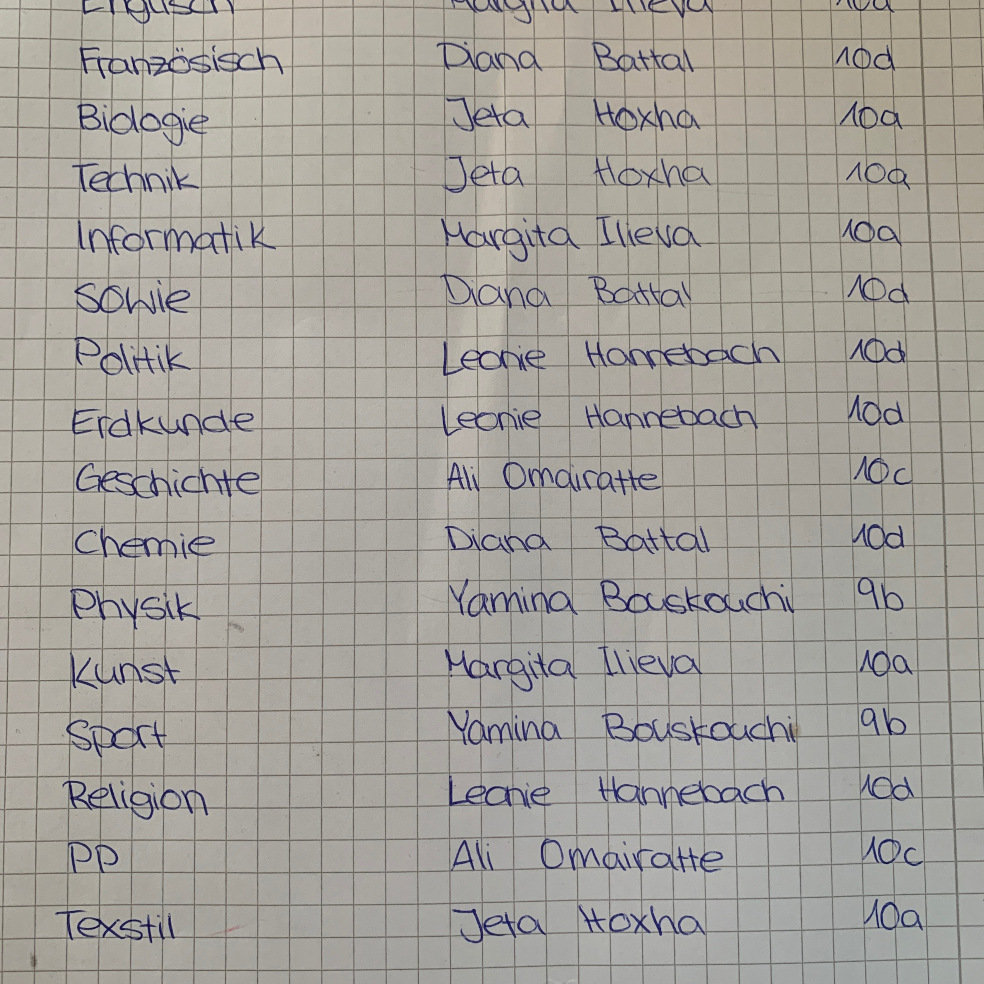 Englisch Margita Ilieva 10a
Französisch Diana Battal 10d
Biologie Jeta Hoxha 10a
Technik Jeta Hoxha 10a
Informatik Margita Ilieva 10a
Sowie Diana Battal 10d
Politik Leonie Hannebach 10d
Erdkunde Leonie Hannebach 10d
Geschichte Ali Omairatte 10c
Chemie Diana Battal 10d
Physik Yamina Bouskouchi 9b
Kunst Margita Ilieva 10a
Sport Yamina Bouskouchi 9b
Religion Leonie Hannebach 10d
PP Ali Omairatte 10c
Texstil Jeta Hoxha 10a